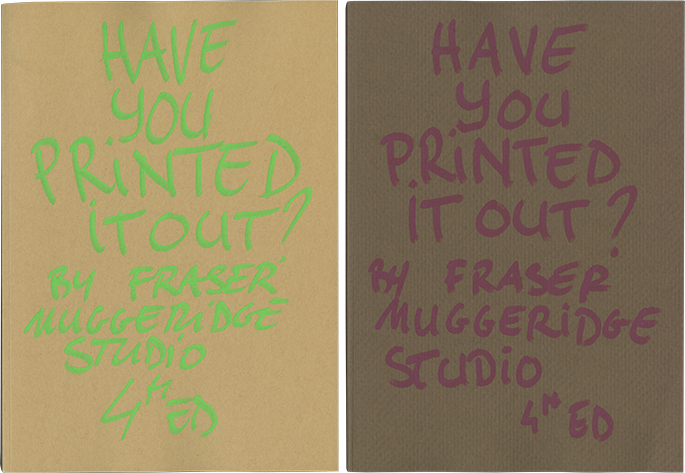 HAVE
YOU
PRiNTED
iT OUT?
BY FRASER
MUGGERiDGE
STUDiO
4TH ED
HAVE
YOU
PRiNTED
iT OUT?
BY FRASER
MUGGERiDGE
STUDiO
4TH ED